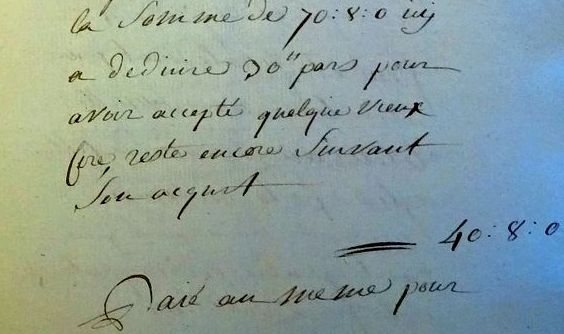 la Somme de 70:8:0
a deduire 30ᵗᵗ pour
avoir accepté quelque vieux
reste encore Suivant
Son acquit
40:8:0
Paié au meme pour